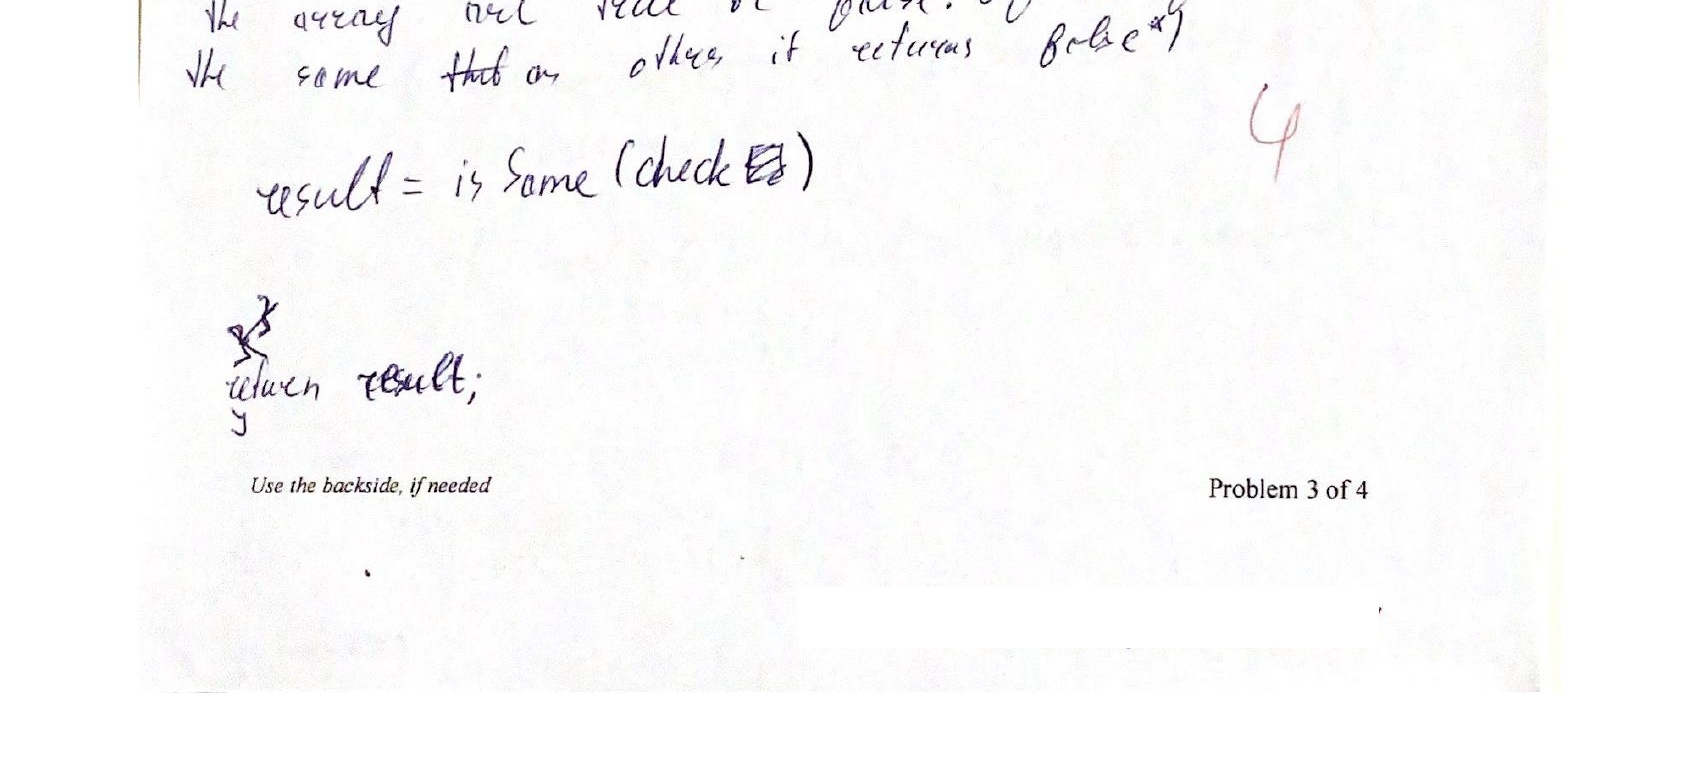 the array are true or false. If
the same that as others it returns false*)
4
result = isSame (check)
return result;
}
Use the backside, if needed
Problem 3 of 4